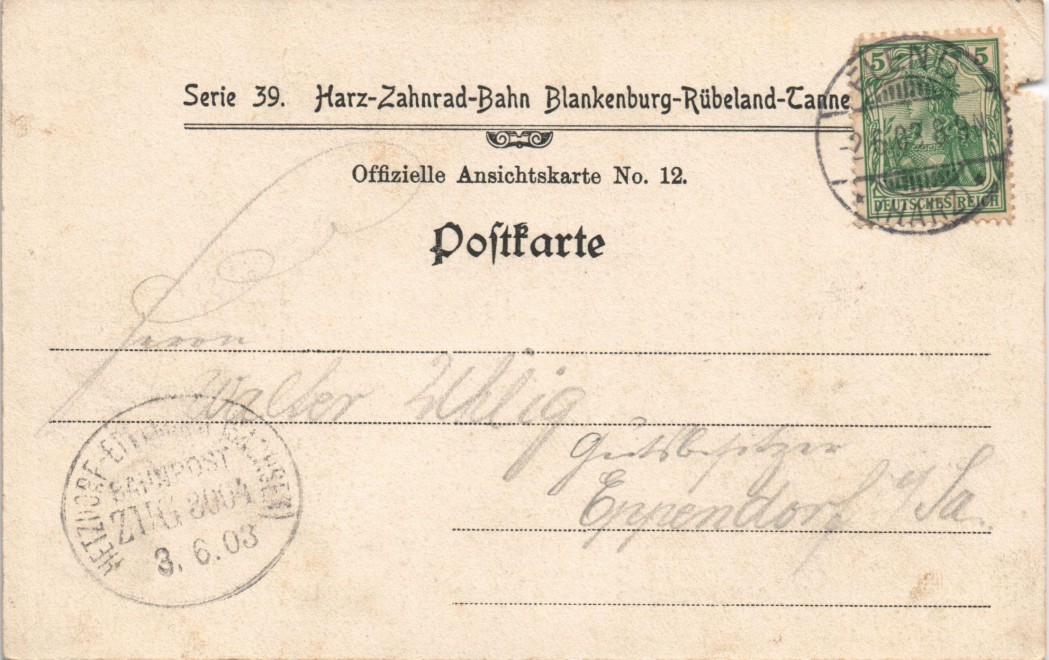 Serie 39. Harz-Zahnrad-Bahn Blankenburg-Rübeland-Tanne
Offizielle Ansichtskarte No. 12.
Poſtkarte
5 5
DEUTSCHES REICH
(HARZ)
Herrn
Walter Uhlig
Gutsbesitzer
Eppendorf i/Sa.
HETZDORF-EPPENDORF (SACHSEN)
BAHNPOST
ZUG 8004
3. 6. 03